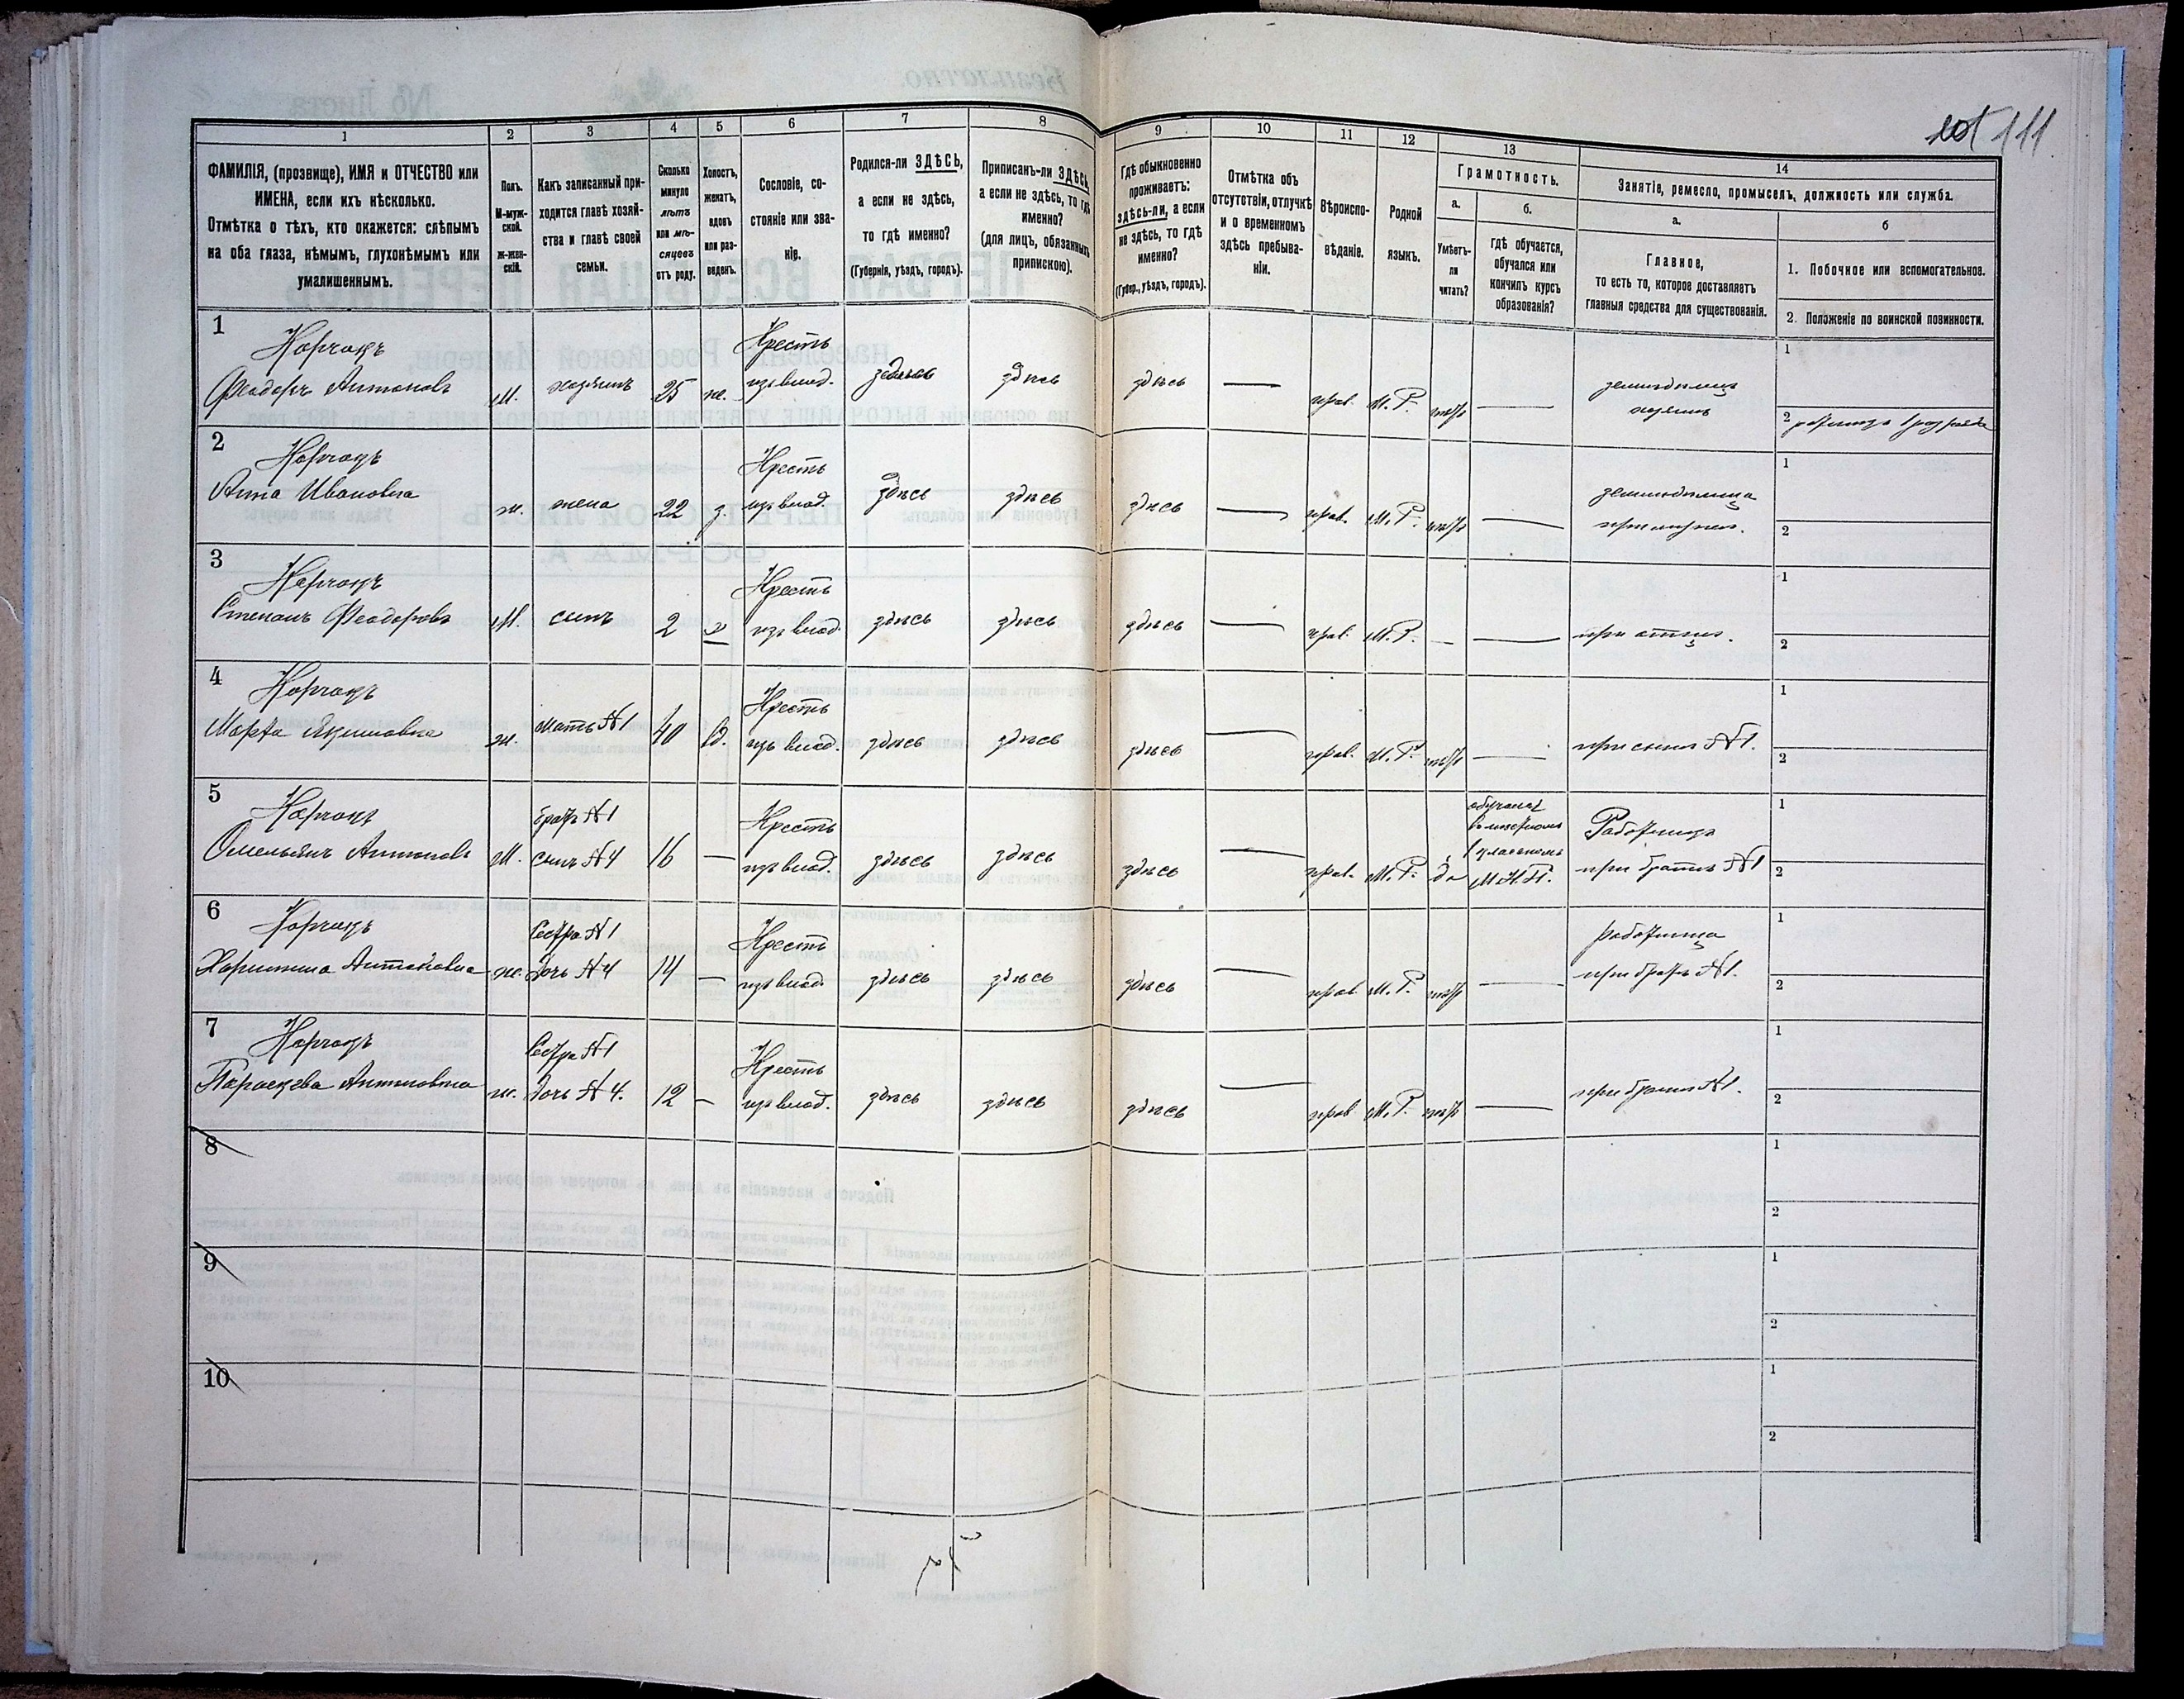 101 111
1 2 3 4 5 6 7 8 9 10 11 12 13 14
ФАМИЛІЯ, (прозвище), ИМЯ и ОТЧЕСТВО или
ИМЕНА, если ихъ нѣсколько.
Отмѣтка о тѣхъ, кто окажется: слѣпымъ
на оба глаза, нѣмымъ, глухонѣмымъ или
умалишеннымъ.
Полъ.
М-муж-
ской.
Ж-жен-
скій.
Какъ записанный при-
ходится главѣ хозяй-
ства и главѣ своей
семьи.
Сколько
минуло
лѣтъ
или мѣ-
сяцевъ
отъ роду.
Холостъ,
женатъ,
вдовъ
или раз-
веденъ.
Сословіе, со-
стояніе или зва-
ніе.
Родился-ли ЗДѢСЬ,
а если не здѣсь,
то гдѣ именно?
(Губернія, уѣздъ, городъ).
Приписанъ-ли ЗДѢСЬ,
а если не здѣсь, то гдѣ
именно?
(для лицъ, обязанныхъ
припискою).
Гдѣ обыкновенно
проживаетъ:
здѣсь-ли, а если
не здѣсь, то гдѣ
именно?
(Губер., уѣздъ, городъ).
Отмѣтка объ
отсутствіи, отлучкѣ
и о временномъ
здѣсь пребыва-
ніи.
Вѣроиспо-
вѣданіе.
Родной
языкъ.
Грамотность.
а.
Умѣетъ-
ли
читать?
б.
гдѣ обучается,
обучался или
кончилъ курсъ
образованія?
Занятіе, ремесло, промыселъ, должность или служба.
а.
Главное,
то есть то, которое доставляетъ
главныя средства для существованія.
б
1. Побочное или вспомогательное.
2. Положеніе по воинской повинности.
1
Корчакъ
Феодоръ Антоновъ
М. хозяинъ 25 ж.
Крестъ
изъ влад.
здѣсь здѣсь здѣсь — прав. М. Р. —
хозяинъ
1
2
2
Корчакъ
Анна Ивановна
ж. жена 22 з.
Крестъ
изъ влад.
здѣсь здѣсь здѣсь — прав. М. Р. —
1
2
3
Корчакъ
Степанъ Феодоровъ
М. сынъ 2 х
Крестъ
изъ влад.
здѣсь здѣсь здѣсь — прав. М. Р. — —
при отцѣ.
1
2
4
Корчакъ
Марѳа Якимовна
ж. мать №1 40 вд.
Крестъ
изъ влад.
здѣсь здѣсь здѣсь — прав. М. Р. —
при сынѣ №1.
1
2
5
Корчакъ
Омельянъ Антоновъ
М.
братъ №1
сынъ №4
16 —
Крестъ
изъ влад.
здѣсь здѣсь здѣсь — прав. М. Р. да
М. Н. П.
Работникъ
при братѣ №1
1
2
6
Корчакъ
Харитина Антоновна
ж.
Сестра №1
Дочь №4
14 —
Крестъ
изъ влад.
здѣсь здѣсь здѣсь — прав. М. Р. —
работница
при братѣ №1.
1
2
7
Корчакъ
Параскева Антоновна
ж.
Сестра №1
Дочь №4.
12 —
Крестъ
изъ влад.
здѣсь здѣсь здѣсь — прав М. Р. —
при братѣ №1.
1
2
8
1
2
9
1
2
10
1
2